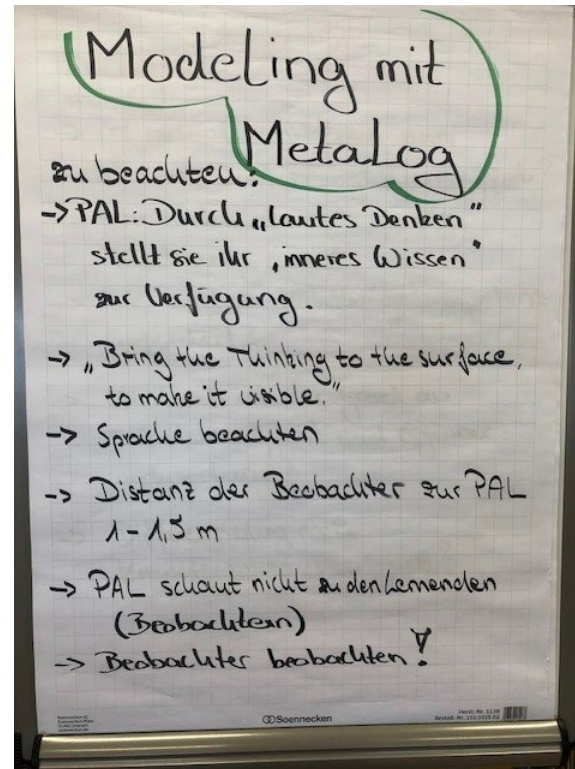 Modeling mit
MetaLog
zu beachten:
-> PAL: Durch „lautes Denken"
stellt sie ihr ‚inneres Wissen"
zur Verfügung.
-> „Bring the Thinking to the surface,
to make it visible."
-> Sprache beachten
-> Distanz der Beobachter zur PAL
1-1,5 m
-> PAL schaut nicht zu den Lernenden
(Beobachtern)
-> Beobachter beobachten!
Soennecken